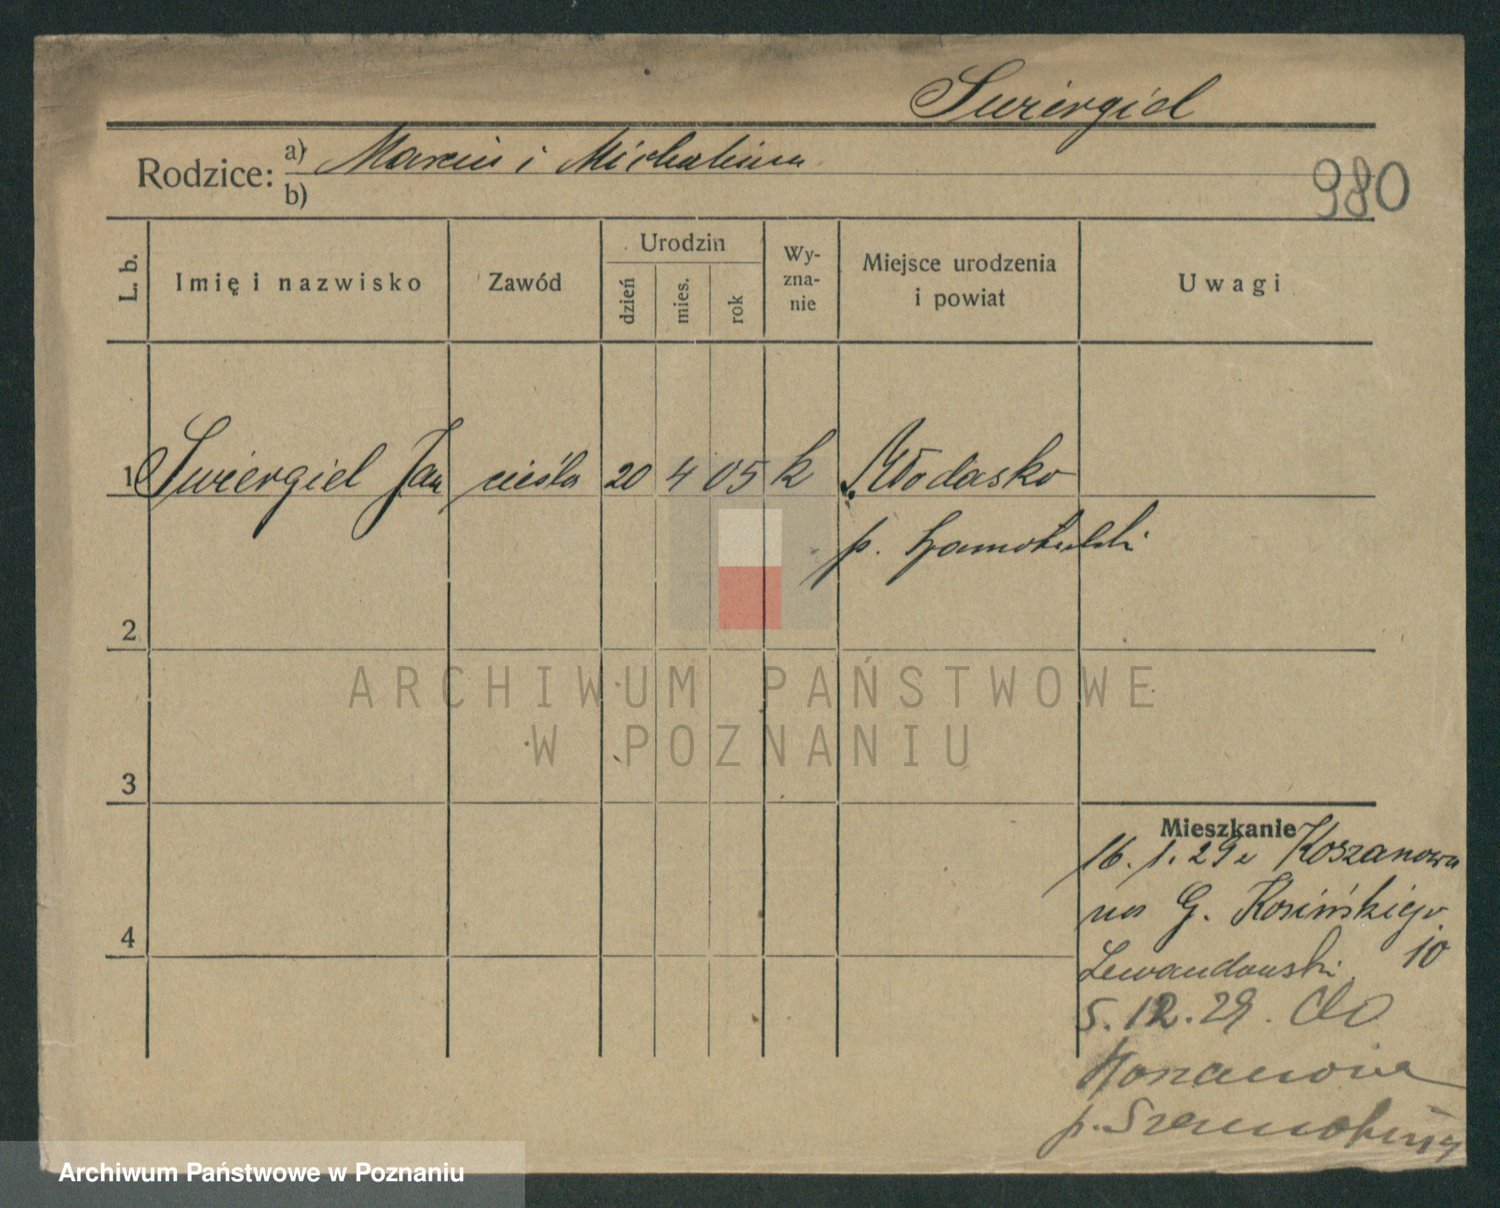 Swiergiel
Rodzice: a) Marcin i Michalina
b)
980
L. b.
Imię i nazwisko
Zawód
Urodzin
dzień
mies.
rok
Wy-
zna-
nie
Miejsce urodzenia
i powiat
Uwagi
1 Swiergiel Jan cieśla 20 4 05 k
p.
2
3
4
Mieszkanie
16. 1. 29 z Koszanowa
na G. Kosińskiego
Lewandowski 10
5. 12. 29. do
Koszanowa
p. Szamotuły
ARCHIWUM PAŃSTWOWE
W POZNANIU
Archiwum Państwowe w Poznaniu